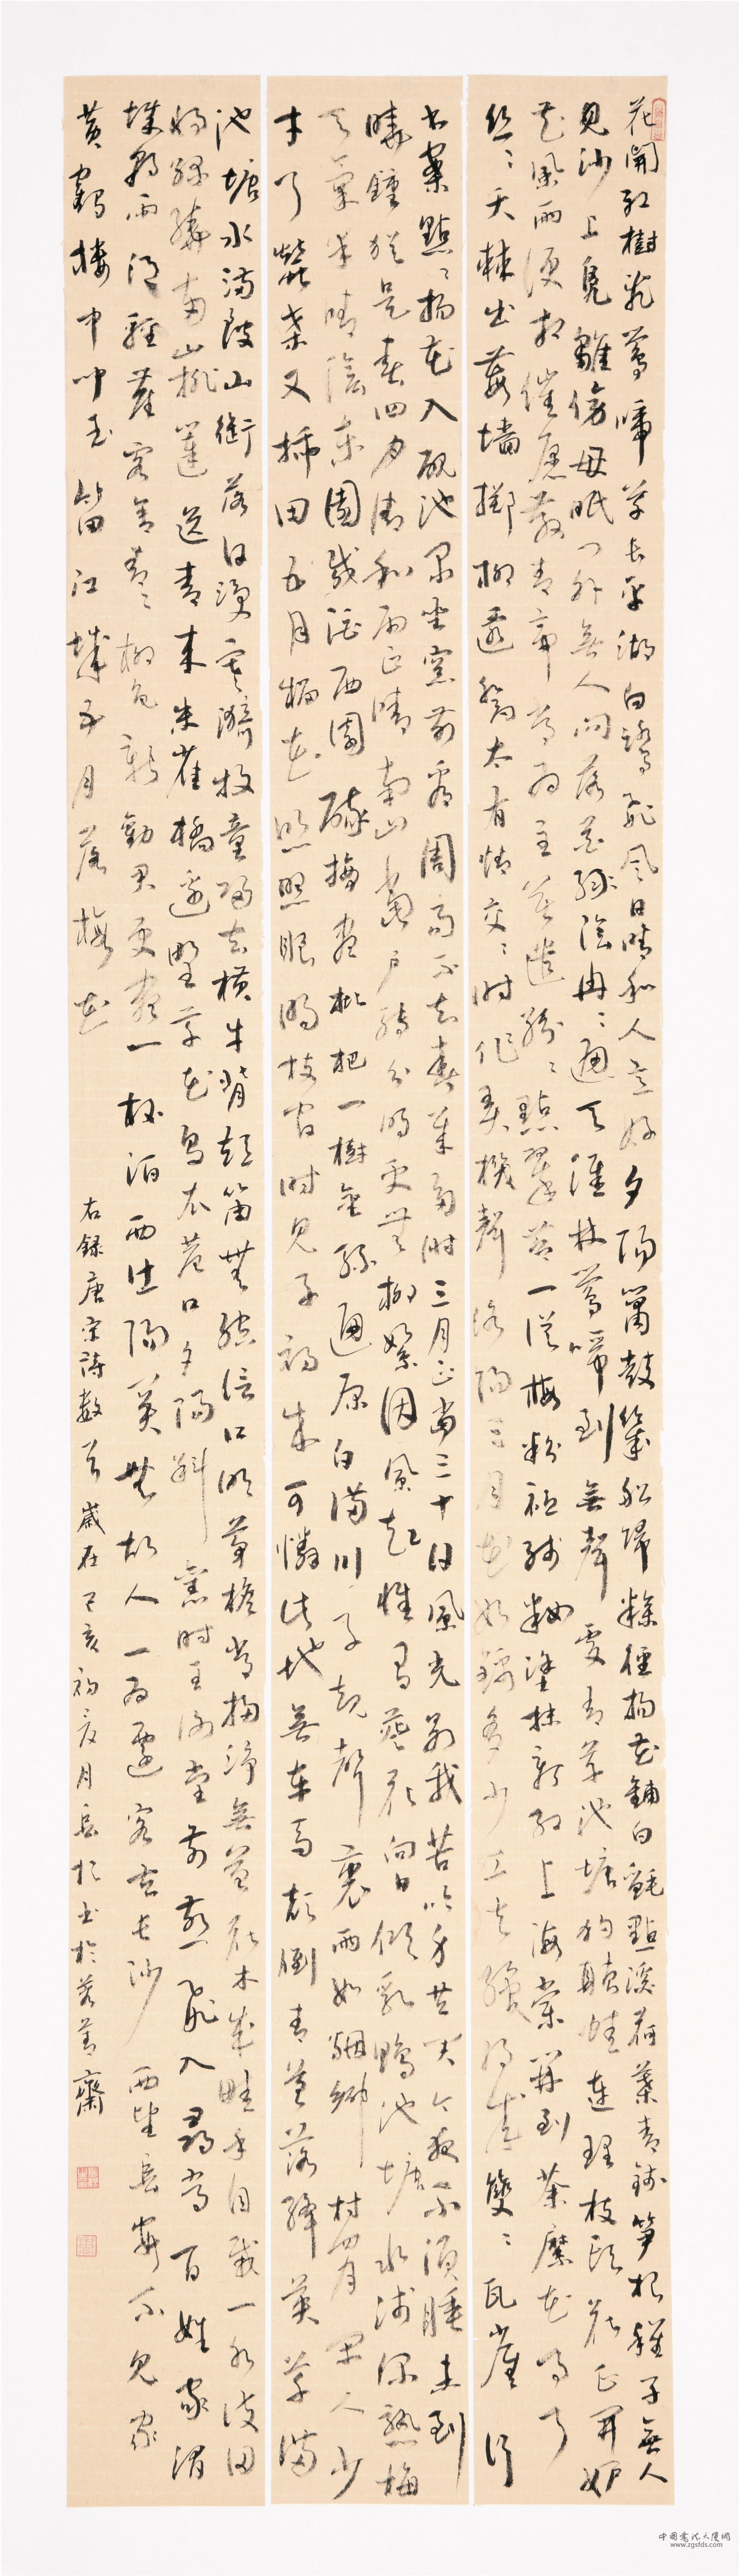 花開紅樹亂鶯啼草長平湖白鷺飛風日晴和人意好夕陽簫鼓幾船歸糝徑楊花鋪白氈點溪荷葉青錢筍根稚子無人
見沙上鳧雛傍母眠門外無人問落花綠陰冉冉遍天涯林鶯啼到無聲處青草池塘獨聽蛙連理枝頭花正開妒
花風雨便相催願教青帝常為主莫遣紛紛點翠苔一從梅粉褪殘妝塗抹新紅上海棠開到荼蘼花事了
絲絲天棘出莓墻擲柳遷喬太有情交交時作弄機聲洛陽三月花如錦多少工夫織得成雙雙瓦雀行
書案點點楊花入硯池閒坐窗前看周易不知春幾多時三月正當三十日風光別我苦吟身共君今夜不須睡未到
曉鐘猶是春四月清和雨正晴南山當戶轉分明更無柳絮因風起惟有葵花向日傾乳鴨池塘水淺深熟梅
天氣半晴陰東園載酒西園醉摘盡枇杷一樹金綠遍原白滿川子規聲裏雨如煙鄉村四月閒人少
才了蠶桑又插田五月榴花照照眼明枝間時見子初成可憐此地無車馬顛倒青苔落絳英草滿
池塘水滿陂山銜落日浸寒漪牧童歸去橫牛背短笛無腔信口吹茅檐常掃淨無苔花木成畦手自栽一水護田
將綠繞兩山排闥送青來朱雀橋邊野草花烏衣巷口夕陽斜舊時王謝堂前燕飛入尋常百姓家渭
城朝雨浥輕塵客舍青青柳色新勸君更盡一杯酒西出陽關無故人一為遷客去長沙西望長安不見家
黃鶴樓中吹玉笛江城五月落梅花
右錄唐宋詩數首歲在己亥初夏月 書於 齋
中国书法大厦网
www.zgsfds.com